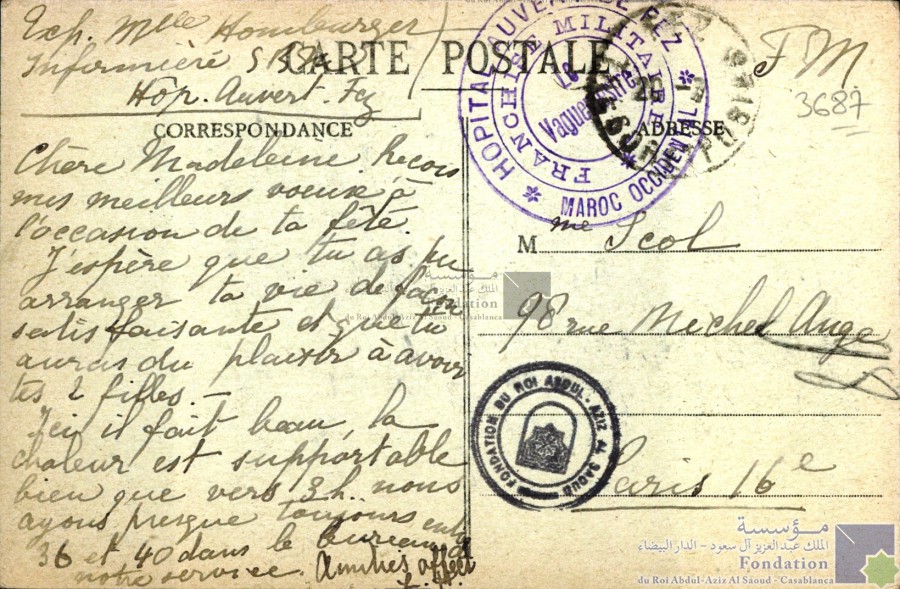 Exp. Mlle Homburger
Infirmière S.P. 387
Hôp. Auvert. Fez
CARTE POSTALE
CORRESPONDANCE
Chère Madeleine, Reçois
mes meilleurs voeux à
l'occasion de ta fête.
J'espère que tu as pu
arranger ta vie de façon
satisfaisante et que tu
auras du plaisir à avoir
tes 2 filles. —
Ici il fait beau, la
chaleur est supportable
bien que vers 3 h. nous
ayons presque toujours entre
36 et 40 dans le bureau de
notre service. Amitiés affect
HOPITAL AUVERT DE FEZ
MAROC OCCIDENTAL
FRANCHISE MILITAIRE
Le Vaguemestre
FM
3687
ADRESSE
Mme Scol
98 rue Michel Ange
Paris 16e
FONDATION DU ROI ABDUL-AZIZ AL SAOUD
مؤسسة
الملك عبد العزيز آل سعود - الدار البيضاء
Fondation
du Roi Abdul-Aziz Al Saoud - Casablanca
مؤسسة
الملك عبد العزيز آل سعود – الدار البيضاء
Fondation
du Roi Abdul-Aziz Al Saoud - Casablanca